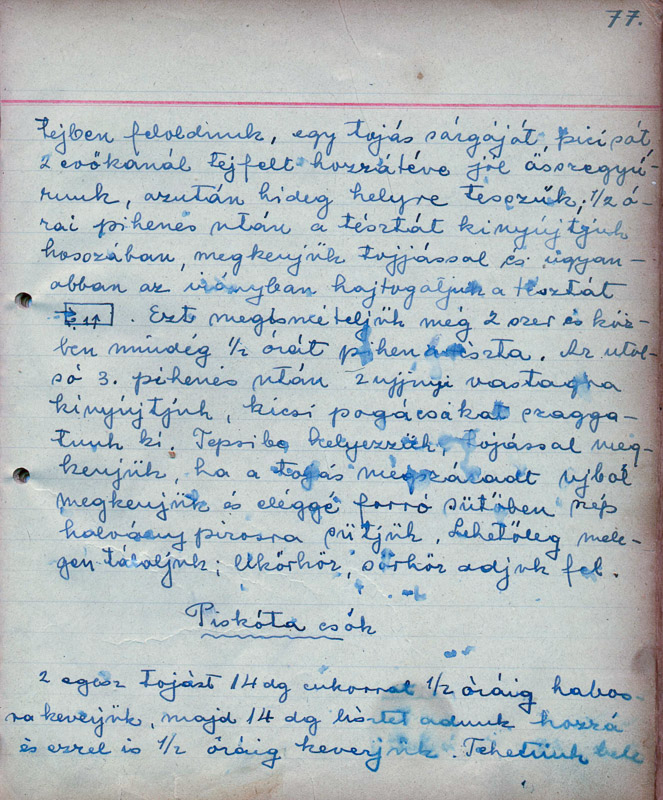 77.
tejben feloldunk, egy tojás sárgáját, pici sót,
2 evőkanál tejfelt hozzátéve jól összegyú-
runk, azután hideg helyre tesszük; 1/2 ó-
rai pihenés után a tésztát kinyújtjuk
hosszában, megkenjük tojjással és ugyan-
abban az irányban hajtogatjuk a tésztát
. Ezt megismételjük még 2 szer és köz-
ben mindég 1/2 órát pihen a tészta. Az utol-
só 3. pihenés után 2 ujjnyi vastagra
kinyújtjuk, kicsi pogácsákat szagga-
tunk ki. Tepsibe helyezzük, tojással meg-
kenjük, ha a tojás megszáradt ujból
megkenjük és eléggé forró sütőben szép
halvány pirosra sütjük. Lehetőleg mele-
gen tálaljuk; likőrhöz, sörhöz adjuk fel.
Piskóta csók
2 egész tojást 14 dg cukorral 1/2 óráig habos-
ra keverjük, majd 14 dg lisztet adunk hozzá
és ezzel is 1/2 óráig keverjük. Tehetünk bele